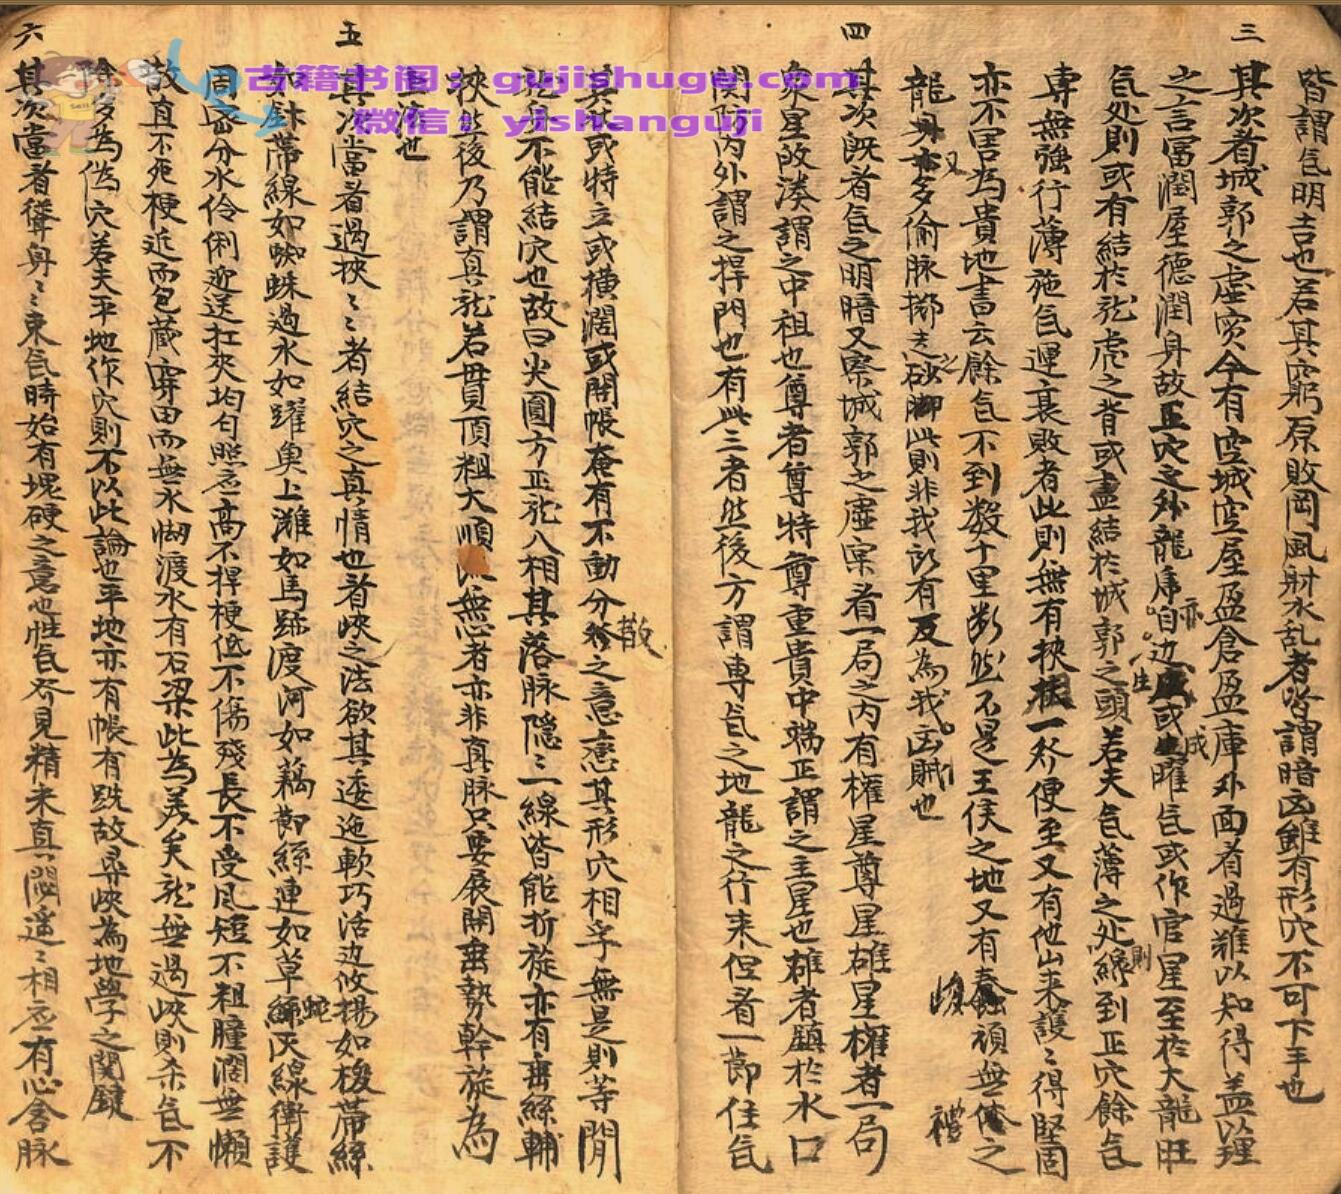 三
皆謂气明吉也若其窮原敗岡風射水乱者皆謂暗凶雖有形穴不可下手也
其次者城郭之虚实今有空城空屋盈倉盈庫外面看過難以知得盖以理
之言富潤屋德潤身故正穴之外龍虎自边或曜气或作官星至於大龍旺
亦生成
气处則或有結於龙虎之背或盡結於城郭之頭若夫气薄之处線到正穴餘气
則
専無強行薄施气運衰敗者此則無有挾扶一发便至又有他山来護〻得堅固
亦不害為貴地書云餘气不到数十里断然不是王侯之地又有蠢頑無之
龍多偷脉擲之砂脚此則非我所有反為我凶賊也
又之峻禮
四
其次既看气之明暗又察城郭之虚实看一局之内有權星尊星雄星權者一局
衆星改湊謂之中祖也尊者尊特尊重貴中端正謂之主星也雄者鎮於水口
関防内外謂之捍門也有此三者然後方謂専气之地龍之行来但看一節住气
其或特立或横濶或開帳奄有不動分之意恋其形穴相孚無是則等閒
散
不能結穴也故曰火圓方正龙八相其落脉隱〻一線皆能折旋亦有垂絲輔
挾然後乃謂真龙若貫頂粗大順無恋者亦非真脉只要展開垂勢幹旋為
也
五
其次當看過挾〻者結穴之真情也看峽之法欲其逶迤軟巧活边攸揚如梭帶絲
如針帶線如蜘蛛過水如躍臭上灘如馬跡渡河如藕節絲連如草灰線衝護
蛇
周密分水伶俐迎送扛夾均匀照应高不捍梗低不傷殘長不受風短不粗腫濶無懶
散直不死梗近而包藏穿田而無水渡水有石梁此為美矣龙無過峽則杀气不
除多為偽穴若夫平地作穴則不以此論也平地亦有帳有跣故尋峽為地學之関鍵
六
其次當看聳身〻束气時始有塊硬之意也性气发見精未真遥〻相应有心含脉
古籍书阁：gujishuge.com
微信：yishanguji